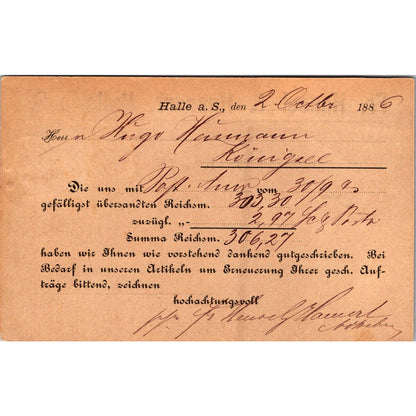 Halle a. S., den 2. Octbr 1886
Herrn Hugo Neumann
Königsee
Die uns mit Post-Anw vom 30/9 cr
gefälligst übersandten Reichsm. 303,30
zuzügl. „- 2,97 Porto
Summa Reichsm. 306,27
haben wir Ihnen wie vorstehend dankend gutgeschrieben. Bei
Bedarf in unseren Artikeln um Erneuerung Ihrer gesch. Auf-
träge bittend, zeichnen
hochachtungsvoll